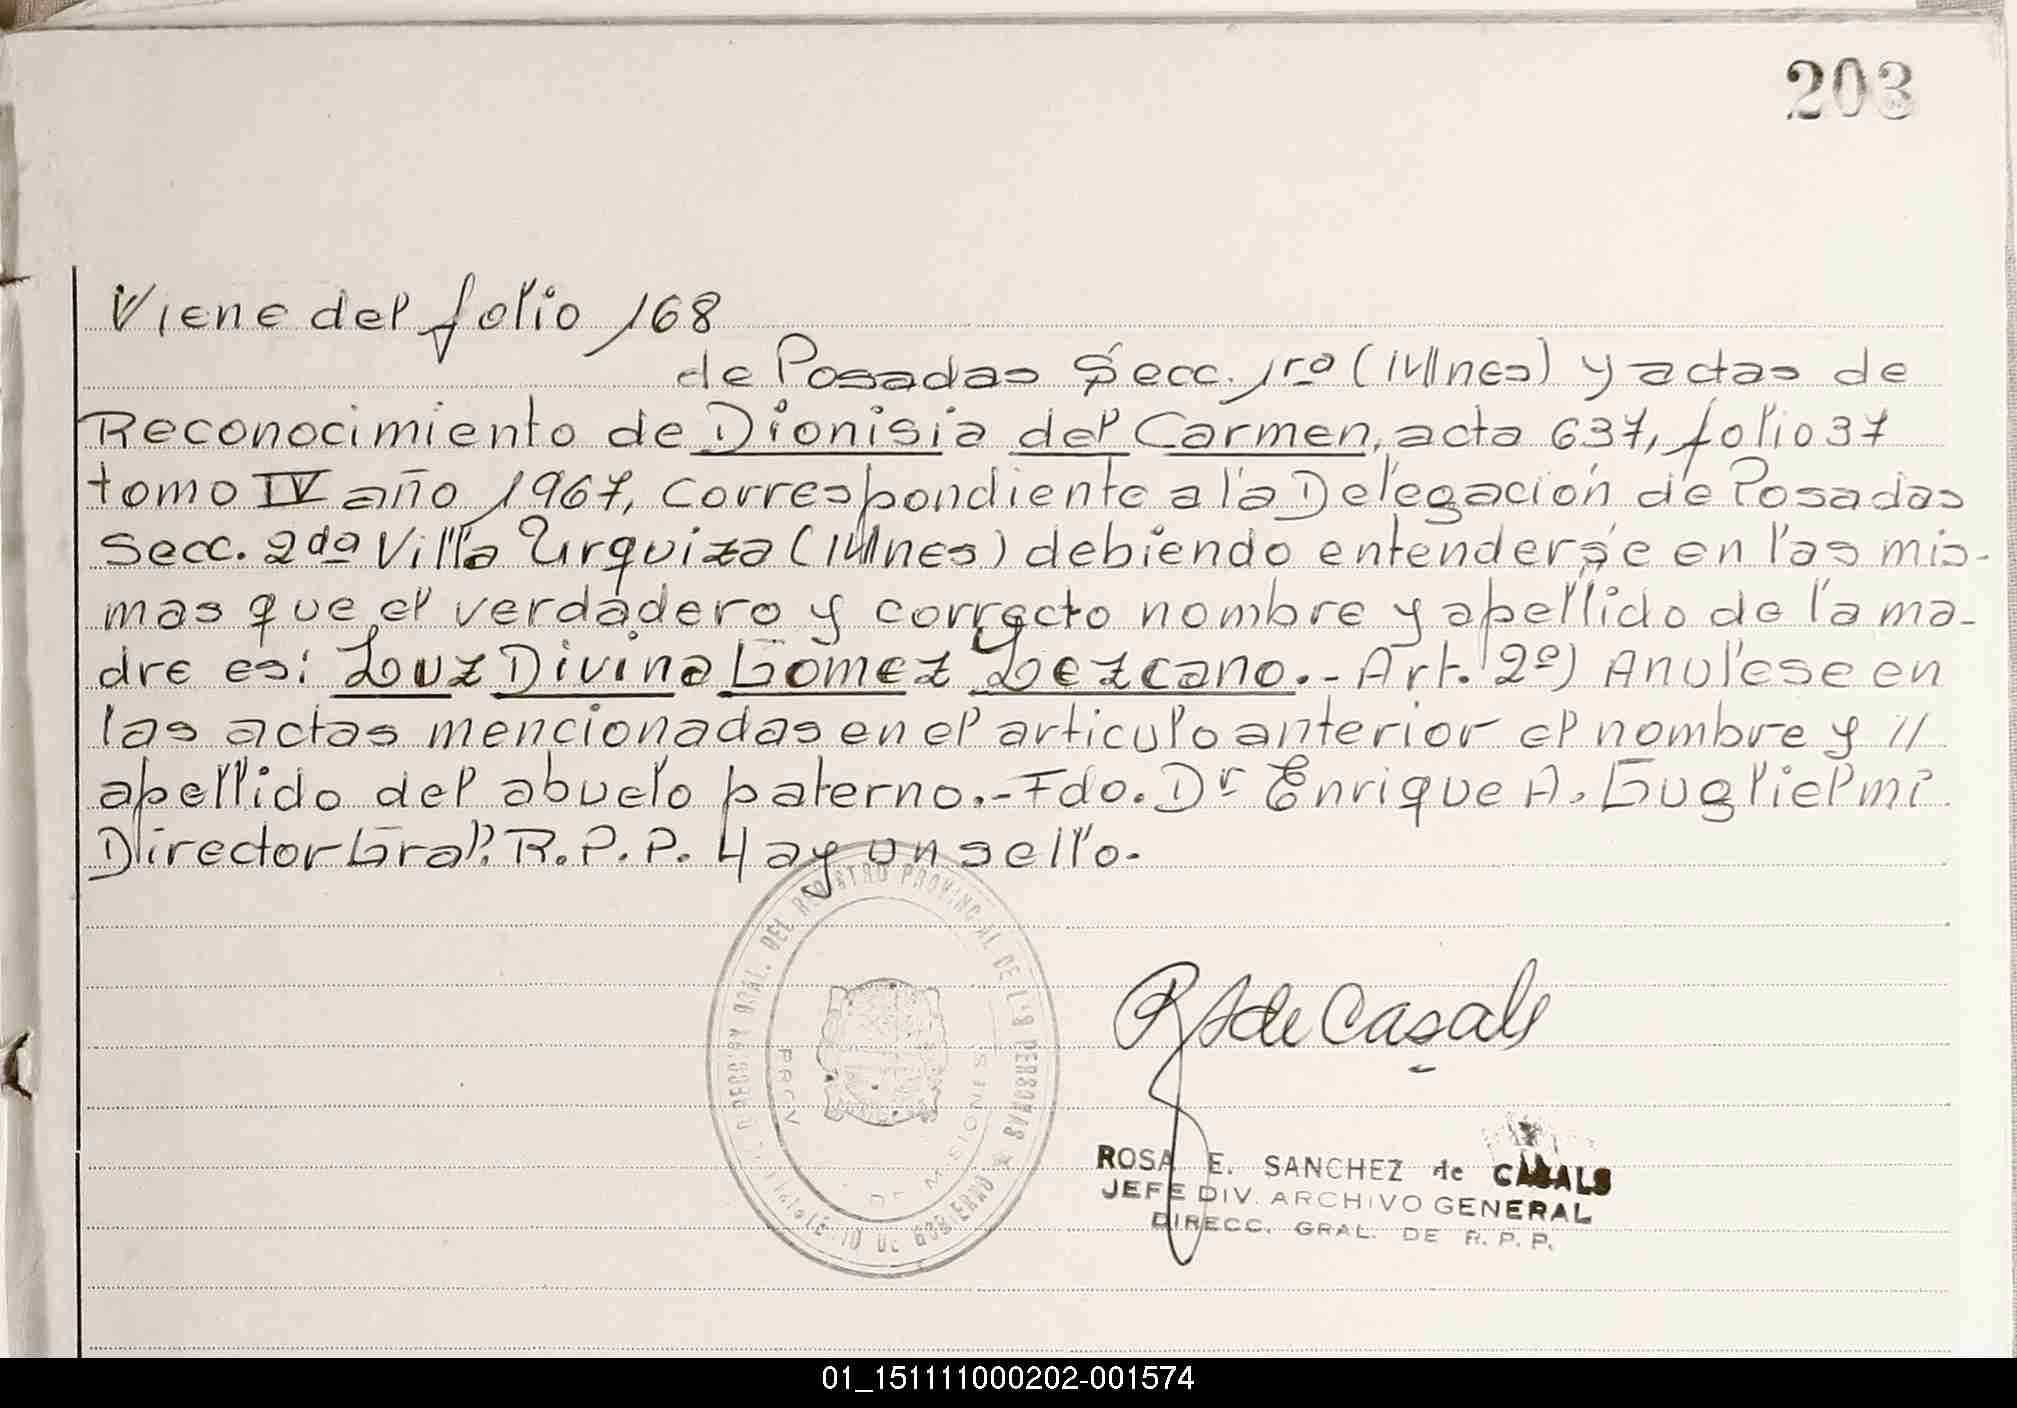 203
Viene del folio 168
de Posadas Secc. 1ra (Mnes) y actas de
Reconocimiento de Dionisia del Carmen, acta 637, folio 37
tomo IV año 1967, correspondiente a la Delegación de Posadas
Secc. 2da Villa Urquiza (Mnes) debiendo entenderse en las mis-
mas que el verdadero y correcto nombre y apellido de la ma-
dre es: Luz Divina Gomez Lezcano.- Art. 2º) Anulese en
las actas mencionadas en el articulo anterior el nombre y //
apellido del abuelo paterno.- Fdo. Dr Enrique A. Guglielmi
Director Gral. R.P.P. Hay un sello.-
DIRECCION GRAL. DEL REGISTRO PROVINCIAL DE LAS PERSONAS
DE GOBIERNO
PROV. DE MISIONES
R S de Casals
ROSA E. SANCHEZ de CASALS
JEFE DIV. ARCHIVO GENERAL
DIRECC. GRAL. DE R. P. P.
01_151111000202-001574